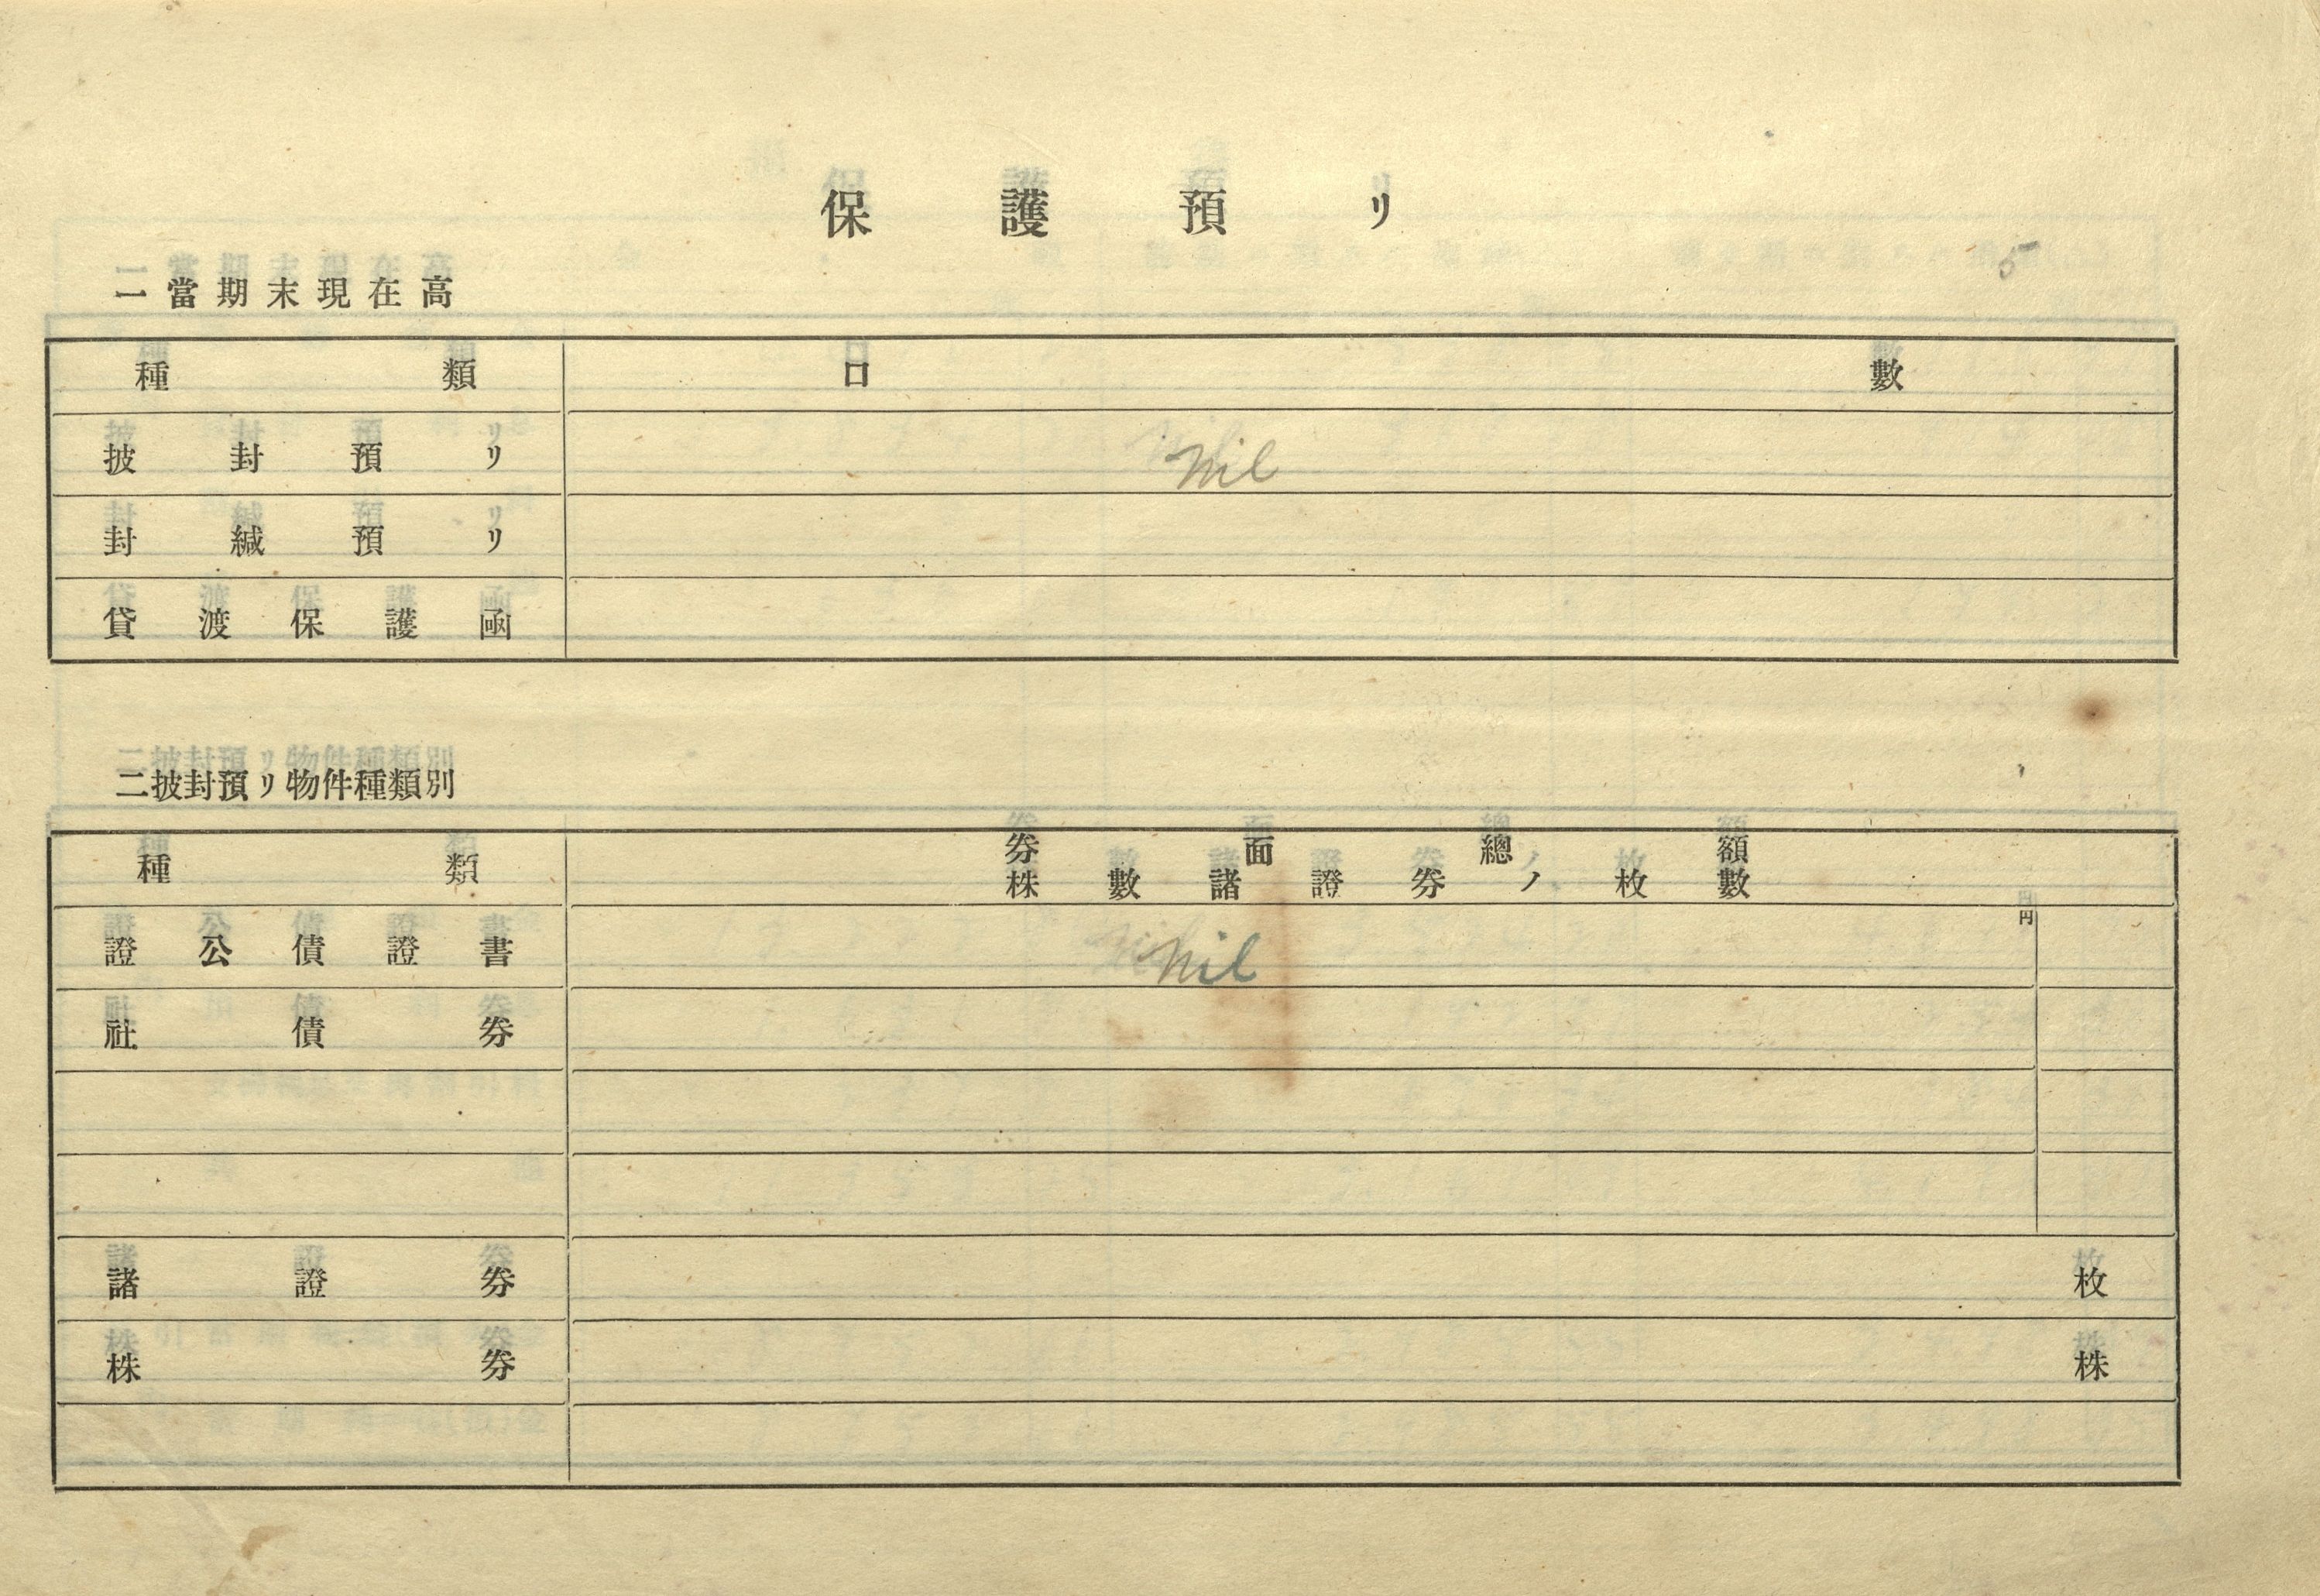 保護預リ
5
一當期末現在高
種類 口數
披封預リ Nil
封緘預リ
貸渡保護凾
二披封預リ物件種類別
種類 券面總額
株數諸證券ノ枚數
円
證公債證書 Nil
社債券
諸證券 枚
株券 株